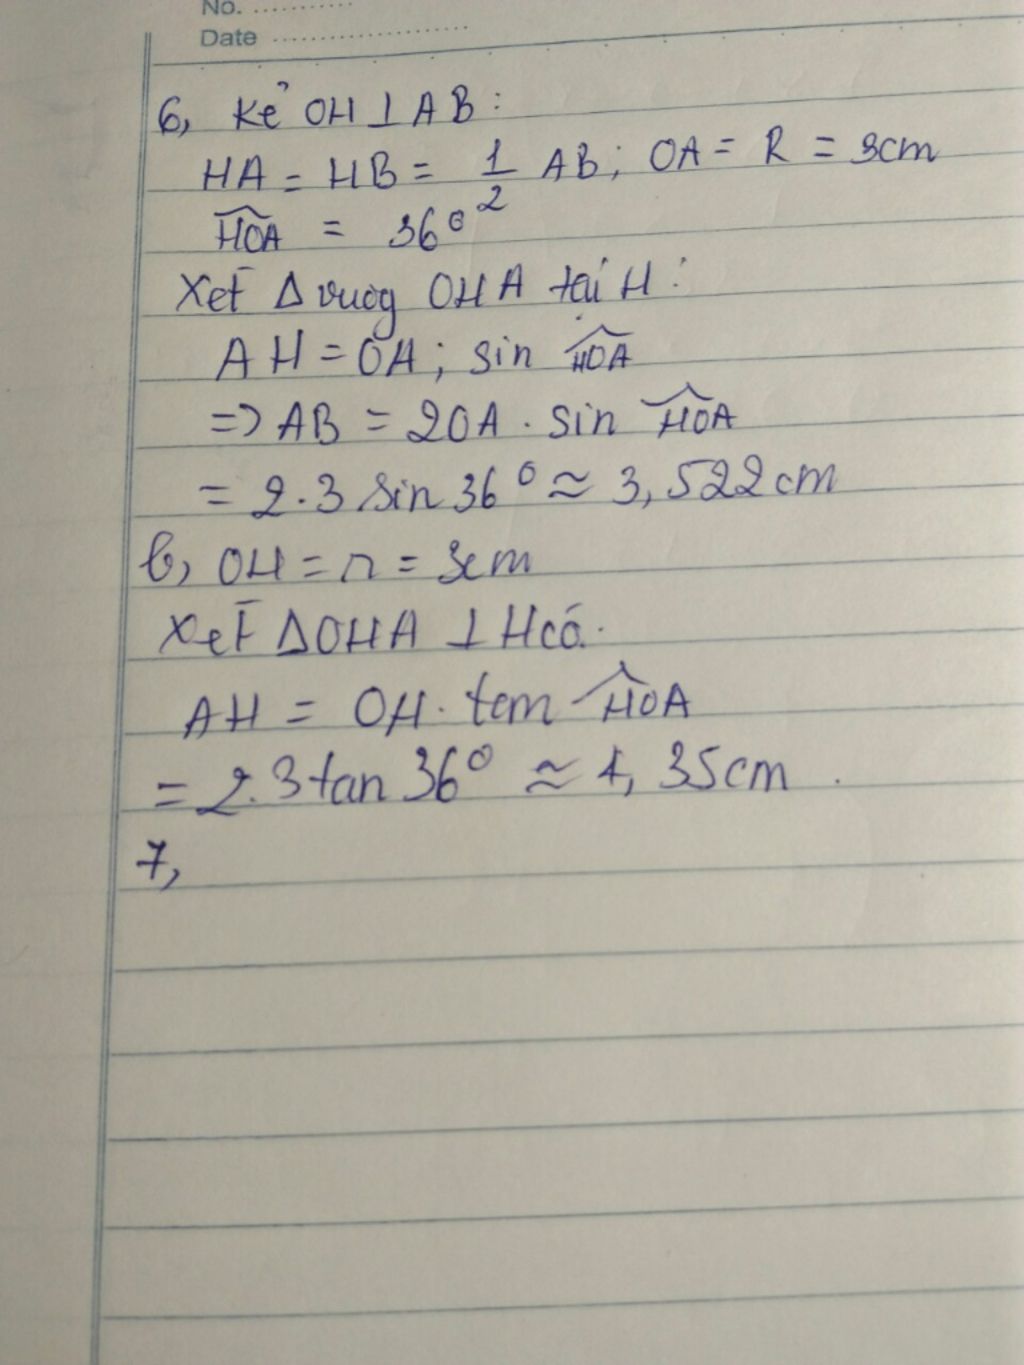 No. ............
Date ........................
6, Kẻ OH ⊥ AB :
HA = HB = 1/2 AB; OA = R = 3cm
HOA = 36°
Xét Δ vuog OHA tại H :
AH = OA; sin HOA
=> AB = 2OA . sin HOA
= 2.3 sin 36° ≈ 3,522 cm
b, OH = r = 3cm
Xét ΔOHA ⊥ H có.
AH = OH . tan HOA
= 2.3 tan 36° ≈ 4,35cm .
7,